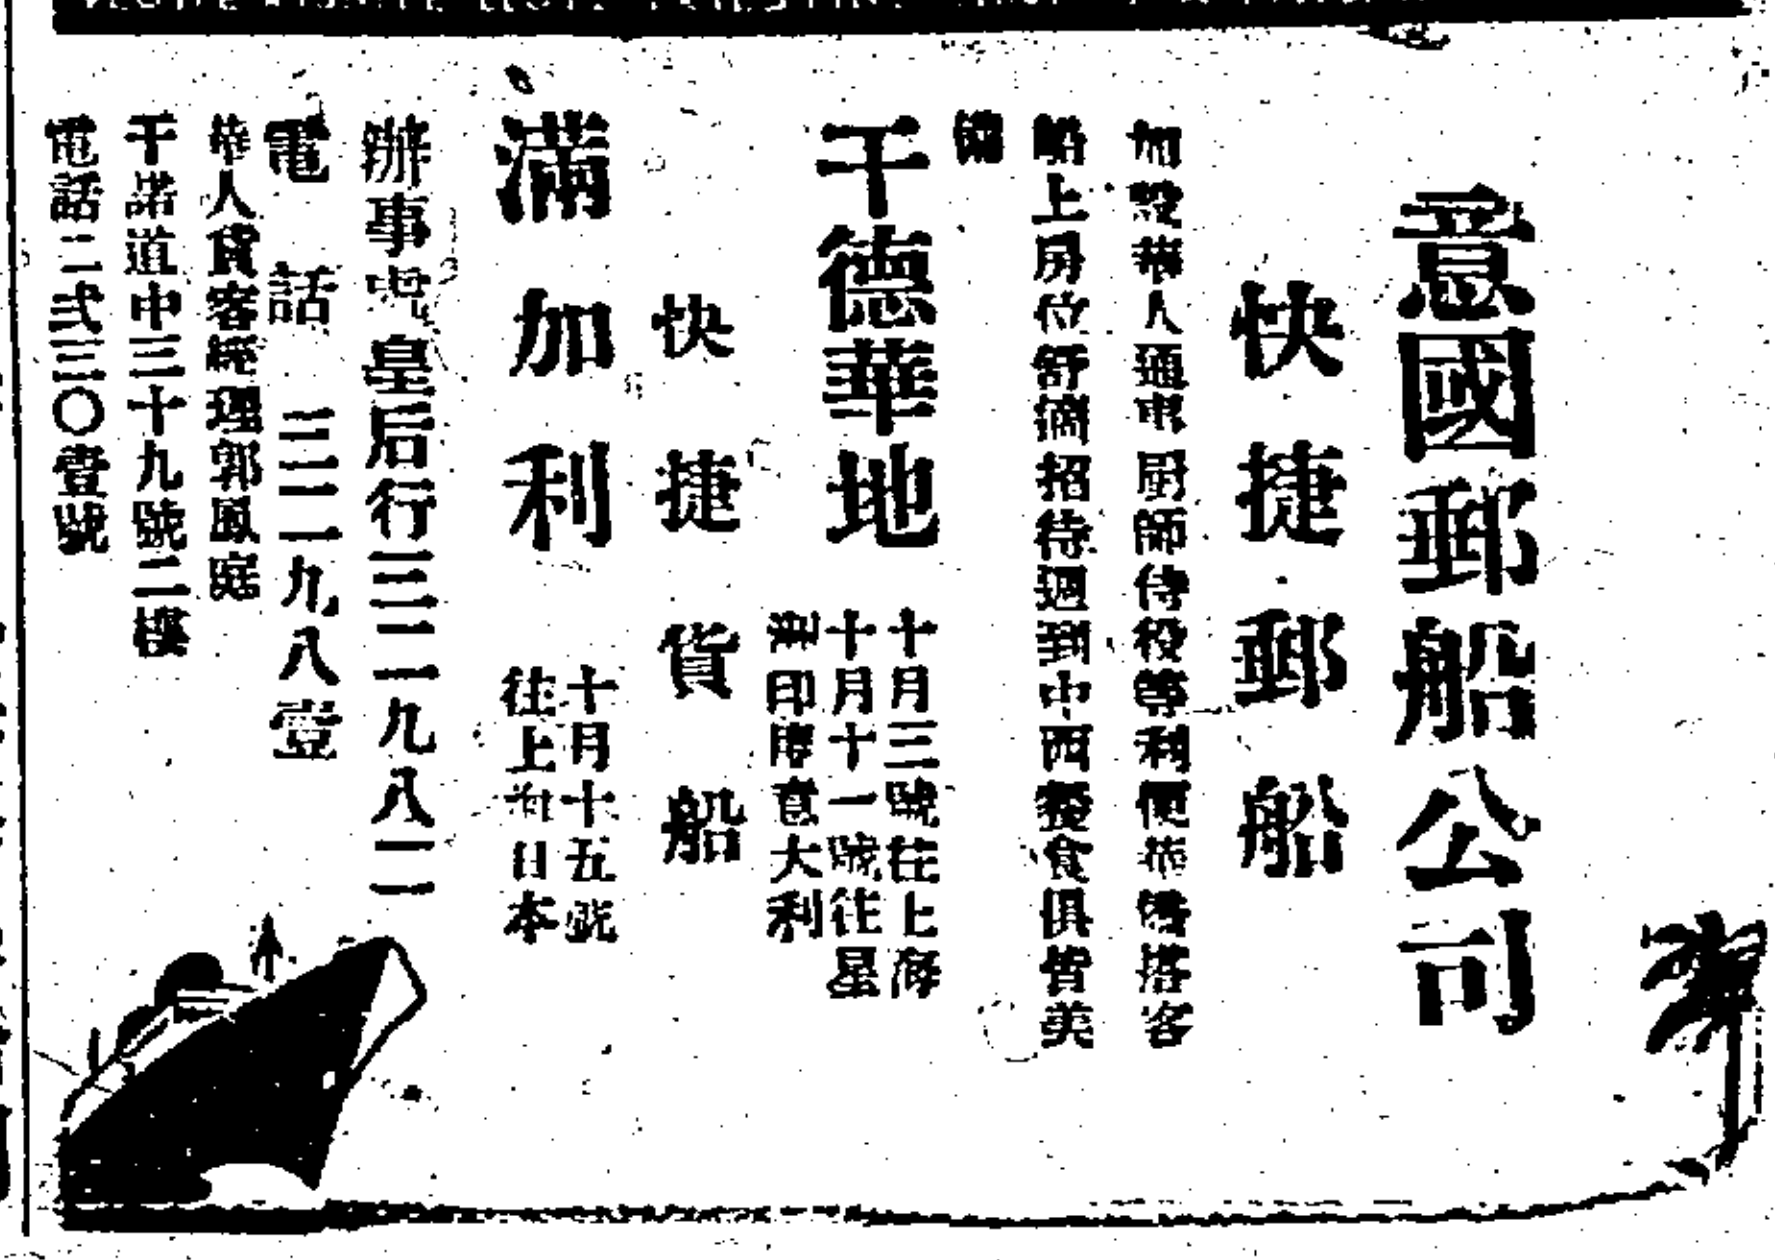 意國郵船公司
快捷郵船
加設華人通事厨師侍役等利便華僑搭客
船上房位舒適招待週到中西餐食俱皆美
備
干德華地
十月三號往上海
十月十一號往星
洲印度意大利
快捷貨船
滿加利
十月十五號
往上海日本
辦事處皇后行三二一九八二
電話三二一九八壹
華人貨客經理郭鳳庭
干諾道中三十九號二樓
電話二弍三〇壹號